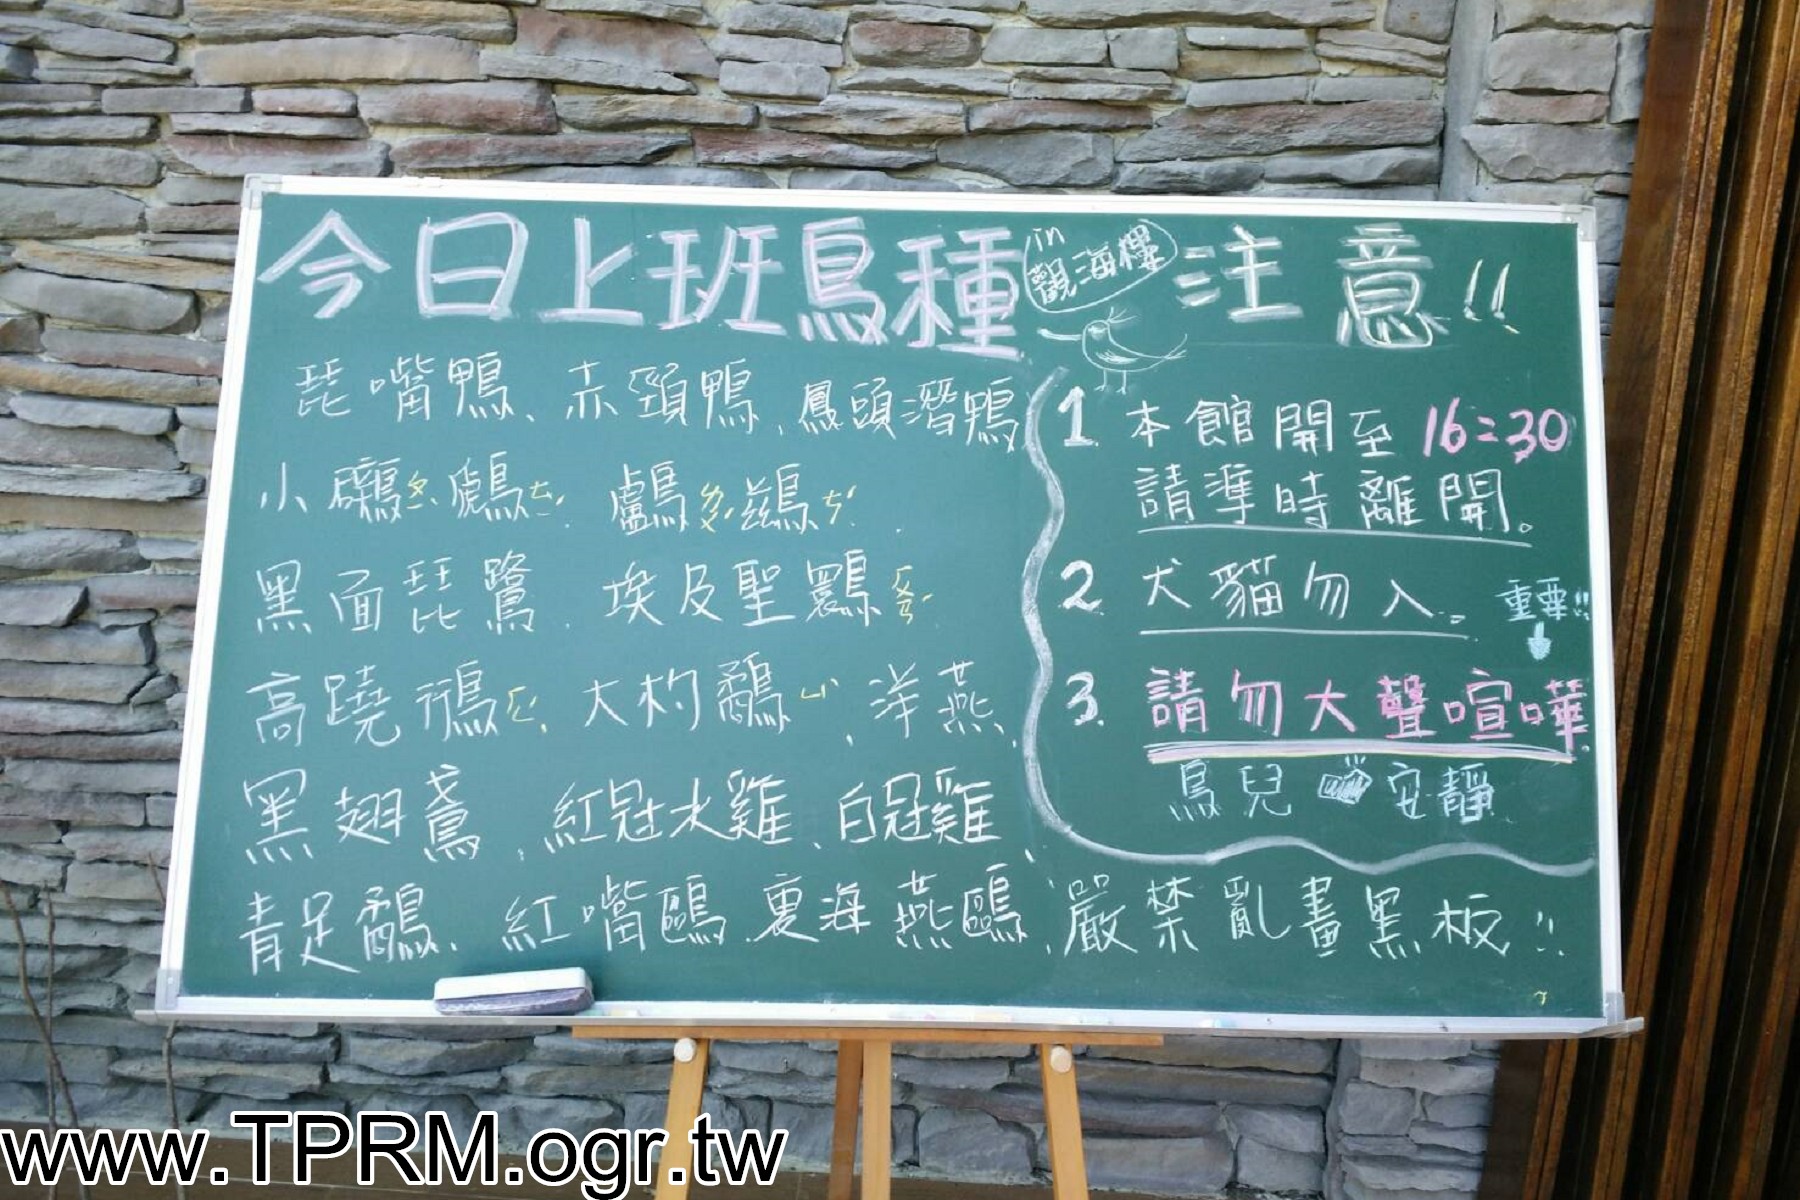 今日上班鳥種 in 觀海樓
琵嘴鴨、赤頸鴨、鳳頭潛鴨
小鸊ㄆㄧˋ鷉ㄊㄧ、鸕ㄌㄨˊ鷀ㄘˊ、
黑面琵鷺、埃及聖䴉ㄏㄨㄢˊ、
高蹺鴴ㄏㄥˊ、大杓鷸ㄩˋ、洋燕、
黑翅鳶、紅冠水雞、白冠雞、
青足鷸、紅嘴鷗、裏海燕鷗、
注意!!
1. 本館開至16:30
請準時離開。
2. 犬貓勿入。
重要!!
3. 請勿大聲喧嘩
鳥兒 安靜
嚴禁亂畫黑板!!
www.TPRM.ogr.tw